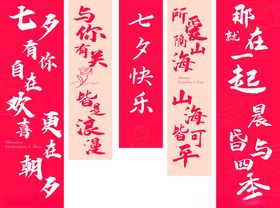 七夕有你
自在欢喜
更在朝夕
Chinese
Valentine's Day
与你有关
皆是浪漫
七夕快乐
所爱隔山海
山海皆可平
那就在一起
晨昏与四季